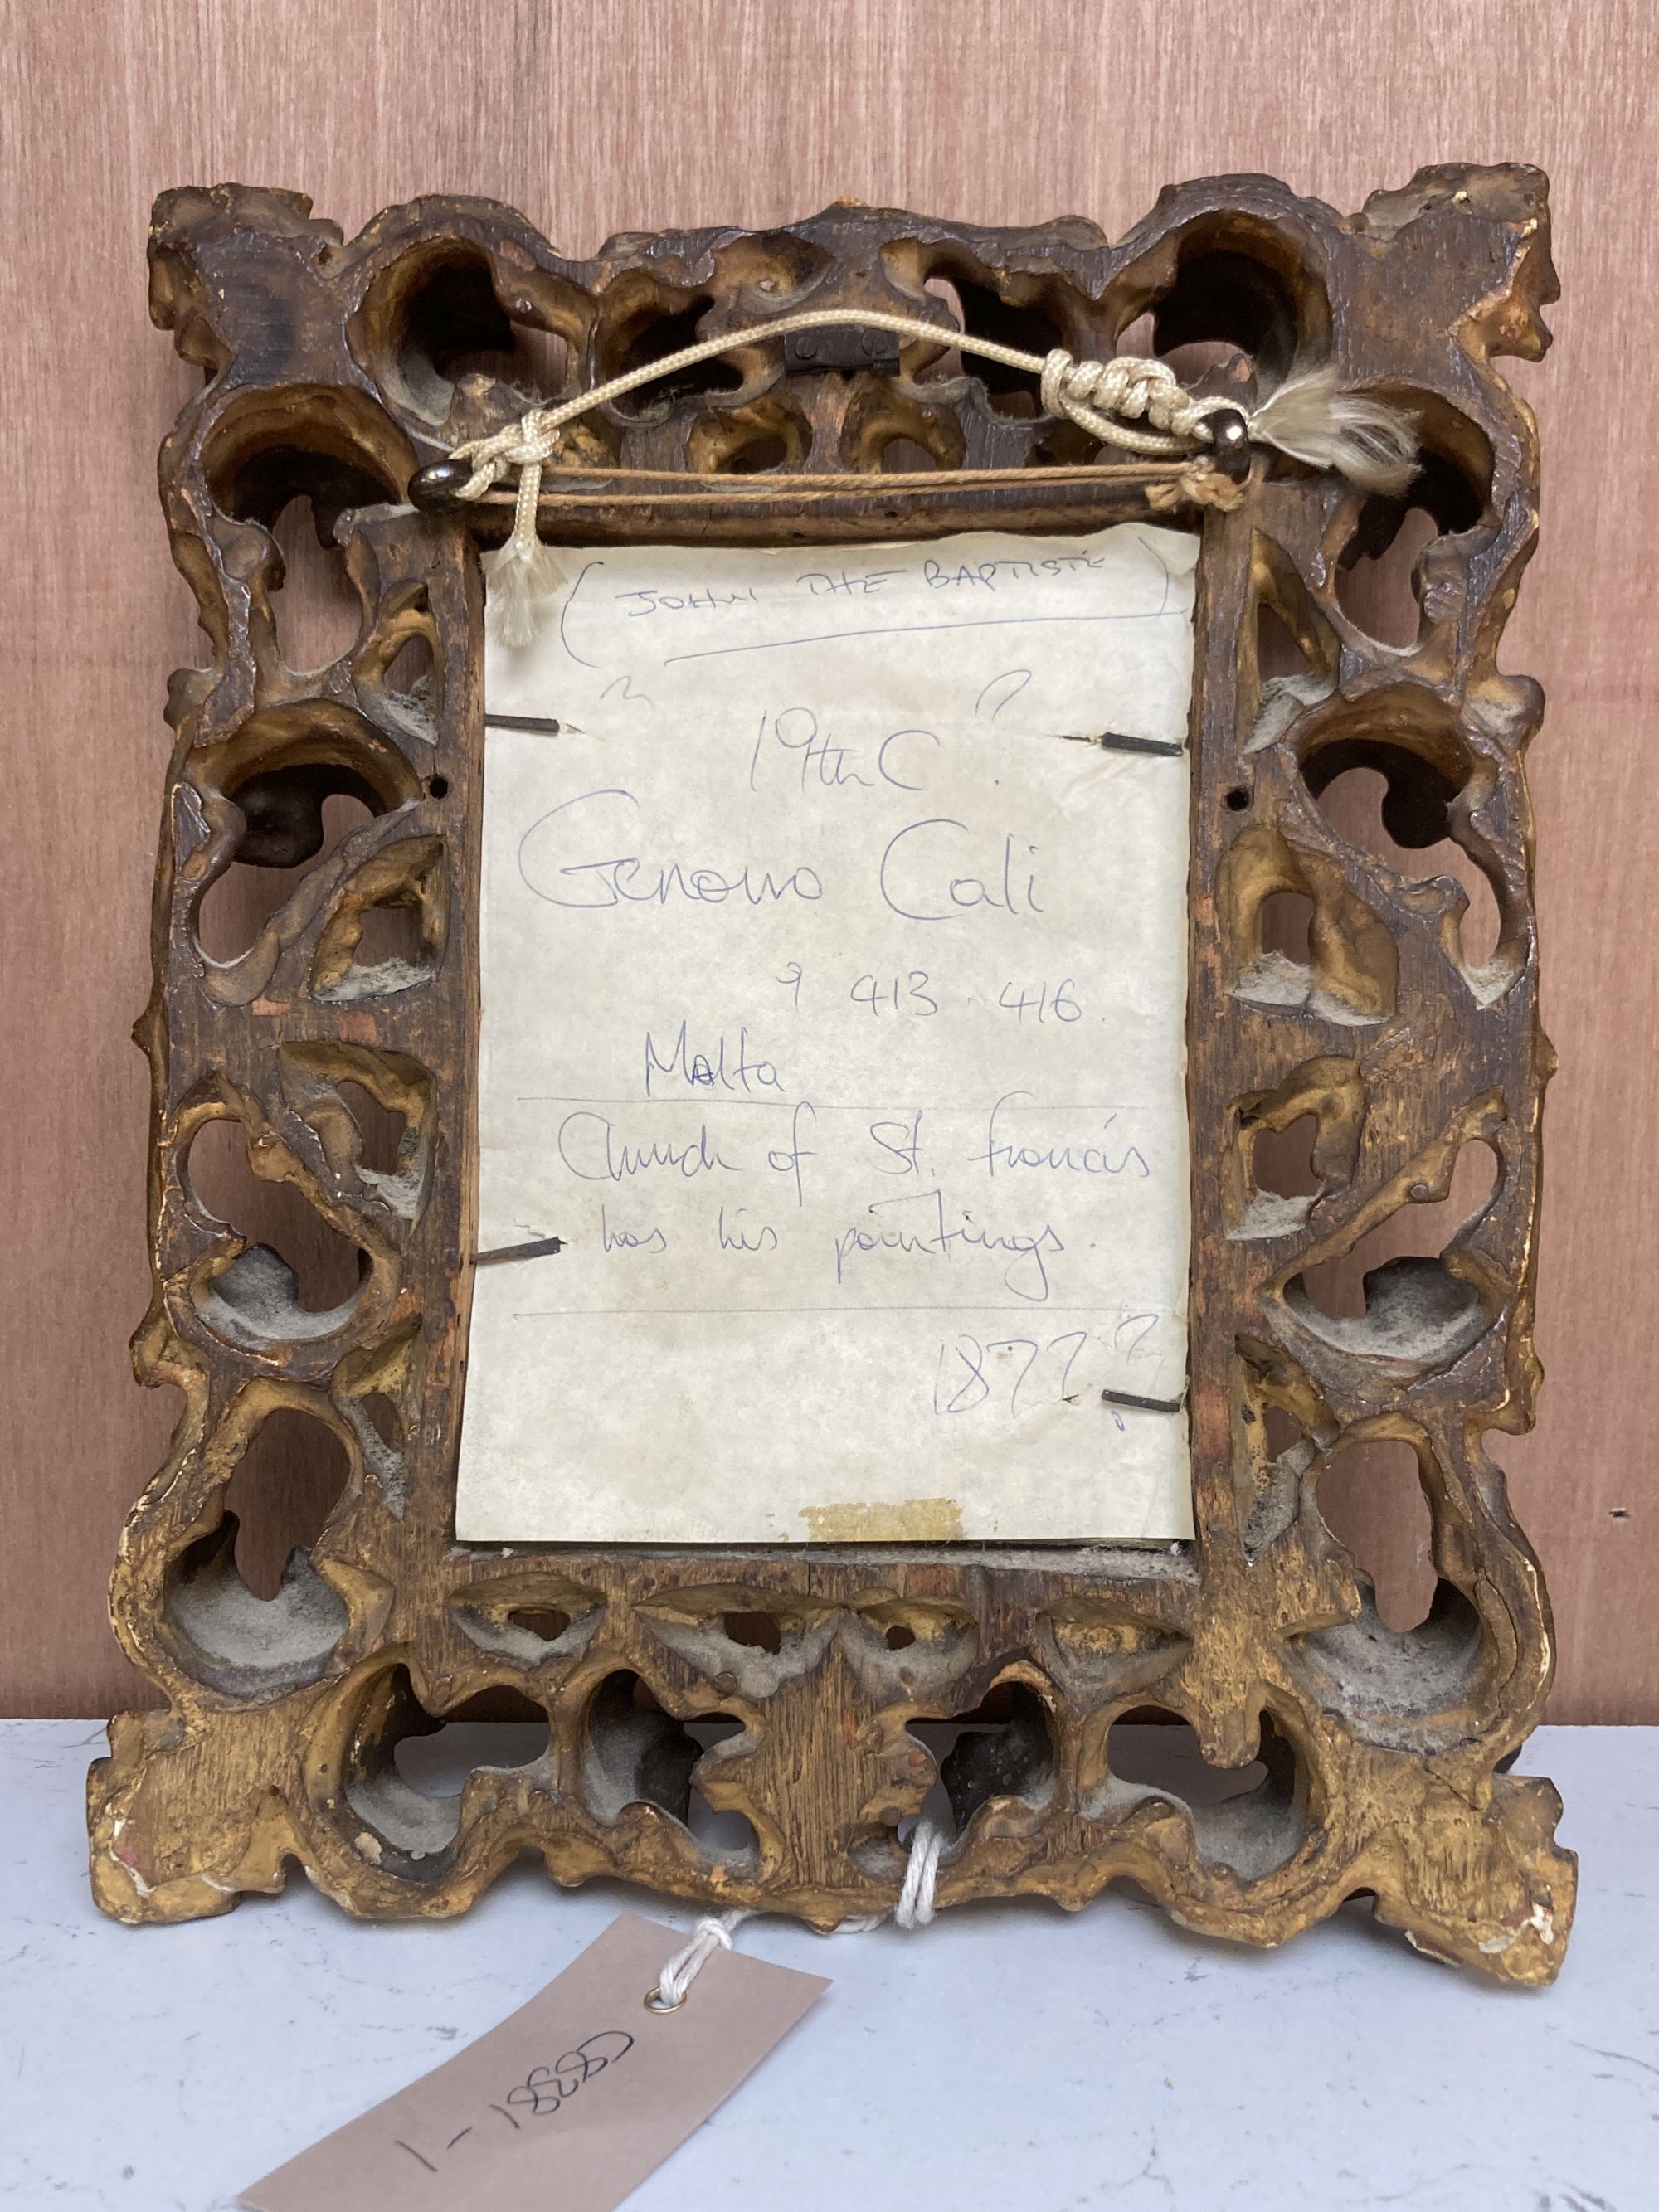 (JOHN THE BAPTISTE)
19th C ?
Cali
9 413 - 416.
Malta
Church of St. Francis
has his paintings.
187? ?
G8381 - 1